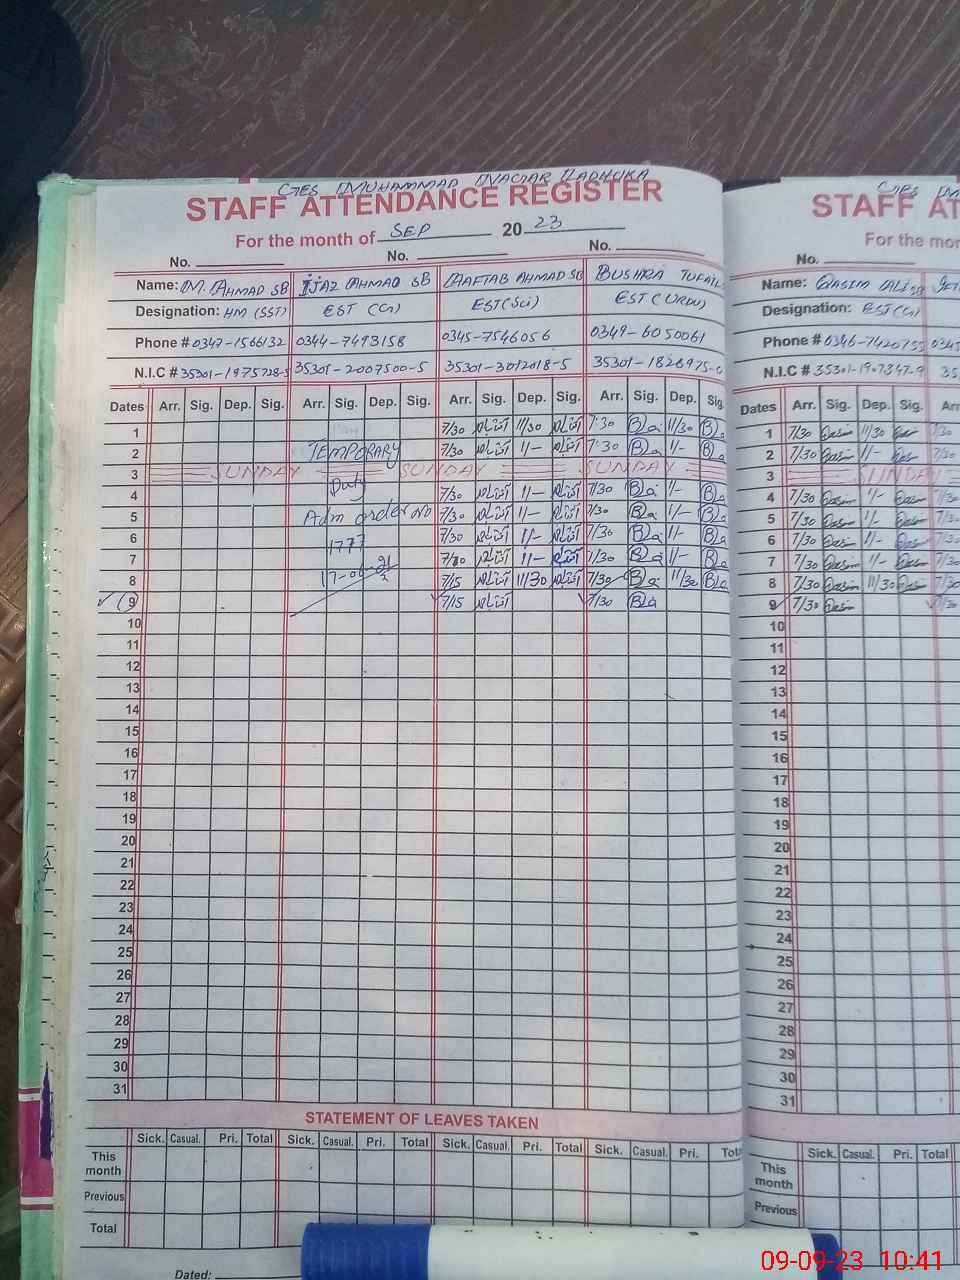 GES MUHAMMAD
STAFF ATTENDANCE REGISTER
For the month of SEP 2023
No. No. No.
Name: M. AHMAD SB IJAZ AHMAD SB AAFTAB AHMAD SB BUSHRA TUFAIL
Designation: HM (SST) EST (G) EST(Sci) EST (URDU)
Phone # 0347-1566132 0344-7493158 0345-7546056 0349-6050061
N.I.C # 35301-1975728-5 35301-2007500-5 35301-3012018-5 35301-1826975-0
Dates Arr. Sig. Dep. Sig. Arr. Sig. Dep. Sig. Arr. Sig. Dep. Sig. Arr. Sig. Dep. Sig.
1 7/30 آفتاب 11/30 آفتاب 7:30 11/30
2 TEMPORARY 7/30 آفتاب 11- آفتاب 7:30 11-
3 SUNDAY SUNDAY SUNDAY
4 Duty 7/30 آفتاب 11- آفتاب 7/30 11-
5 Adm order No 7/30 آفتاب 11- آفتاب 7/30 11-
6 1777 7/30 آفتاب 11- آفتاب 7/30 11-
7 7/30 آفتاب 11- آفتاب 7/30 11-
8 7/15 آفتاب 11/30 آفتاب 7/30 11/30
9 7/15 آفتاب 7/30
10
11
12
13
14
15
16
17
18
19
20
21
22
23
24
25
26
27
28
29
30
31
STATEMENT OF LEAVES TAKEN
Sick. Casual. Pri. Total Sick. Casual. Pri. Total Sick. Casual. Pri. Total Sick. Casual. Pri.
This month
Previous
Total
Dated:
STAFF AT
For the mon
No.
Name: QASIM ALI SB
Designation: EST(G)
Phone # 0346-7420755
N.I.C # 35301-1907347-9
Dates Arr. Sig. Dep. Sig.
1 7/30 Qasim 11/30 Qasim
2 7/30 Qasim 11- Qasim
3 SUNDAY
4 7/30 Qasim 11- Qasim
5 7/30 Qasim 11- Qasim
6 7/30 Qasim 11- Qasim
7 7/30 Qasim 11- Qasim
8 7/30 Qasim 11/30 Qasim
9 7/30 Qasim
10
11
12
13
14
15
16
17
18
19
20
21
22
23
24
25
26
27
28
29
30
31
Sick. Casual. Pri. Total
This month
Previous
09-09-23 10:41